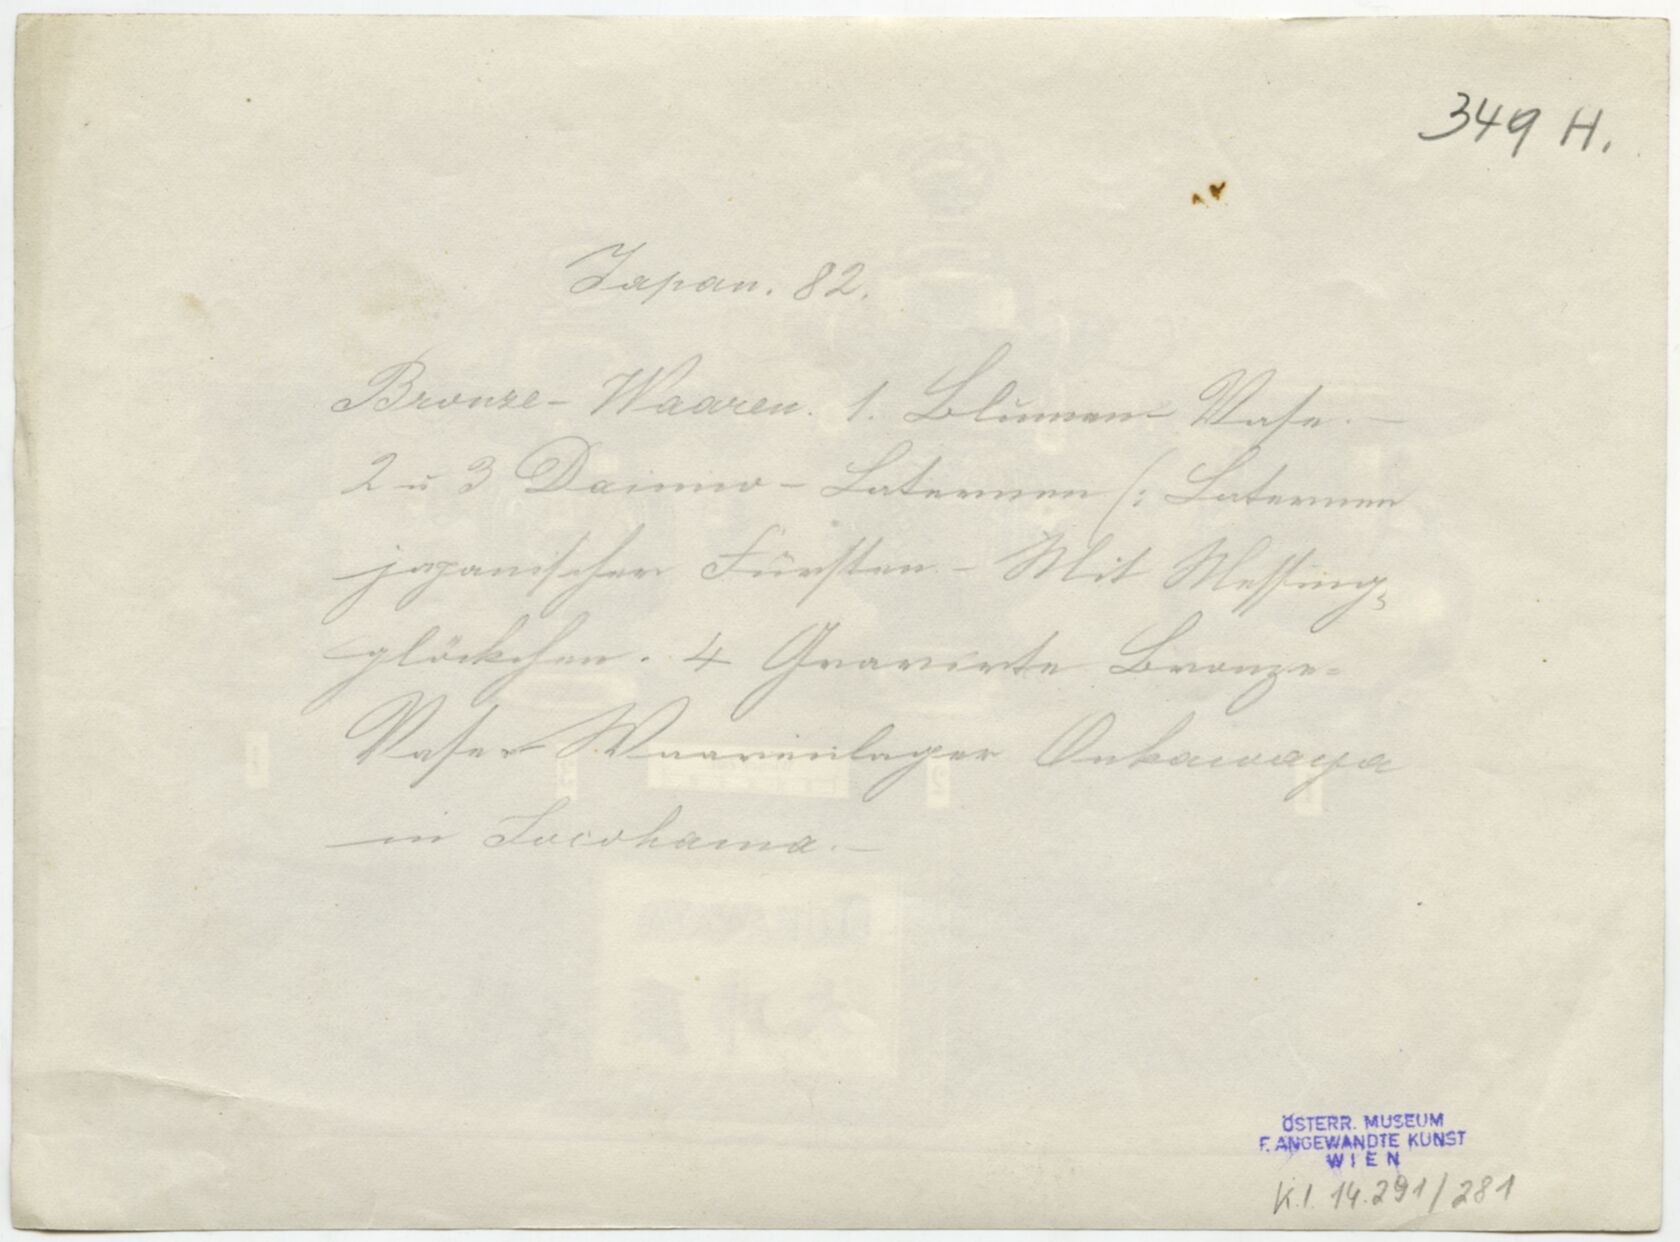 349 H.
Japan. 82.
Bronze-Waaren. 1. Blumen-Vase.—
2 u 3 Daimio-Laternen (: Laternen
japanischer Fürsten - Mit Messing-
glöckchen. 4 Gravirte Bronze-
Vase. Waarenlager Onkawaya
in Jocohama.—
ÖSTERR. MUSEUM
F. ANGEWANDTE KUNST
WIEN
K.I. 14.291/281